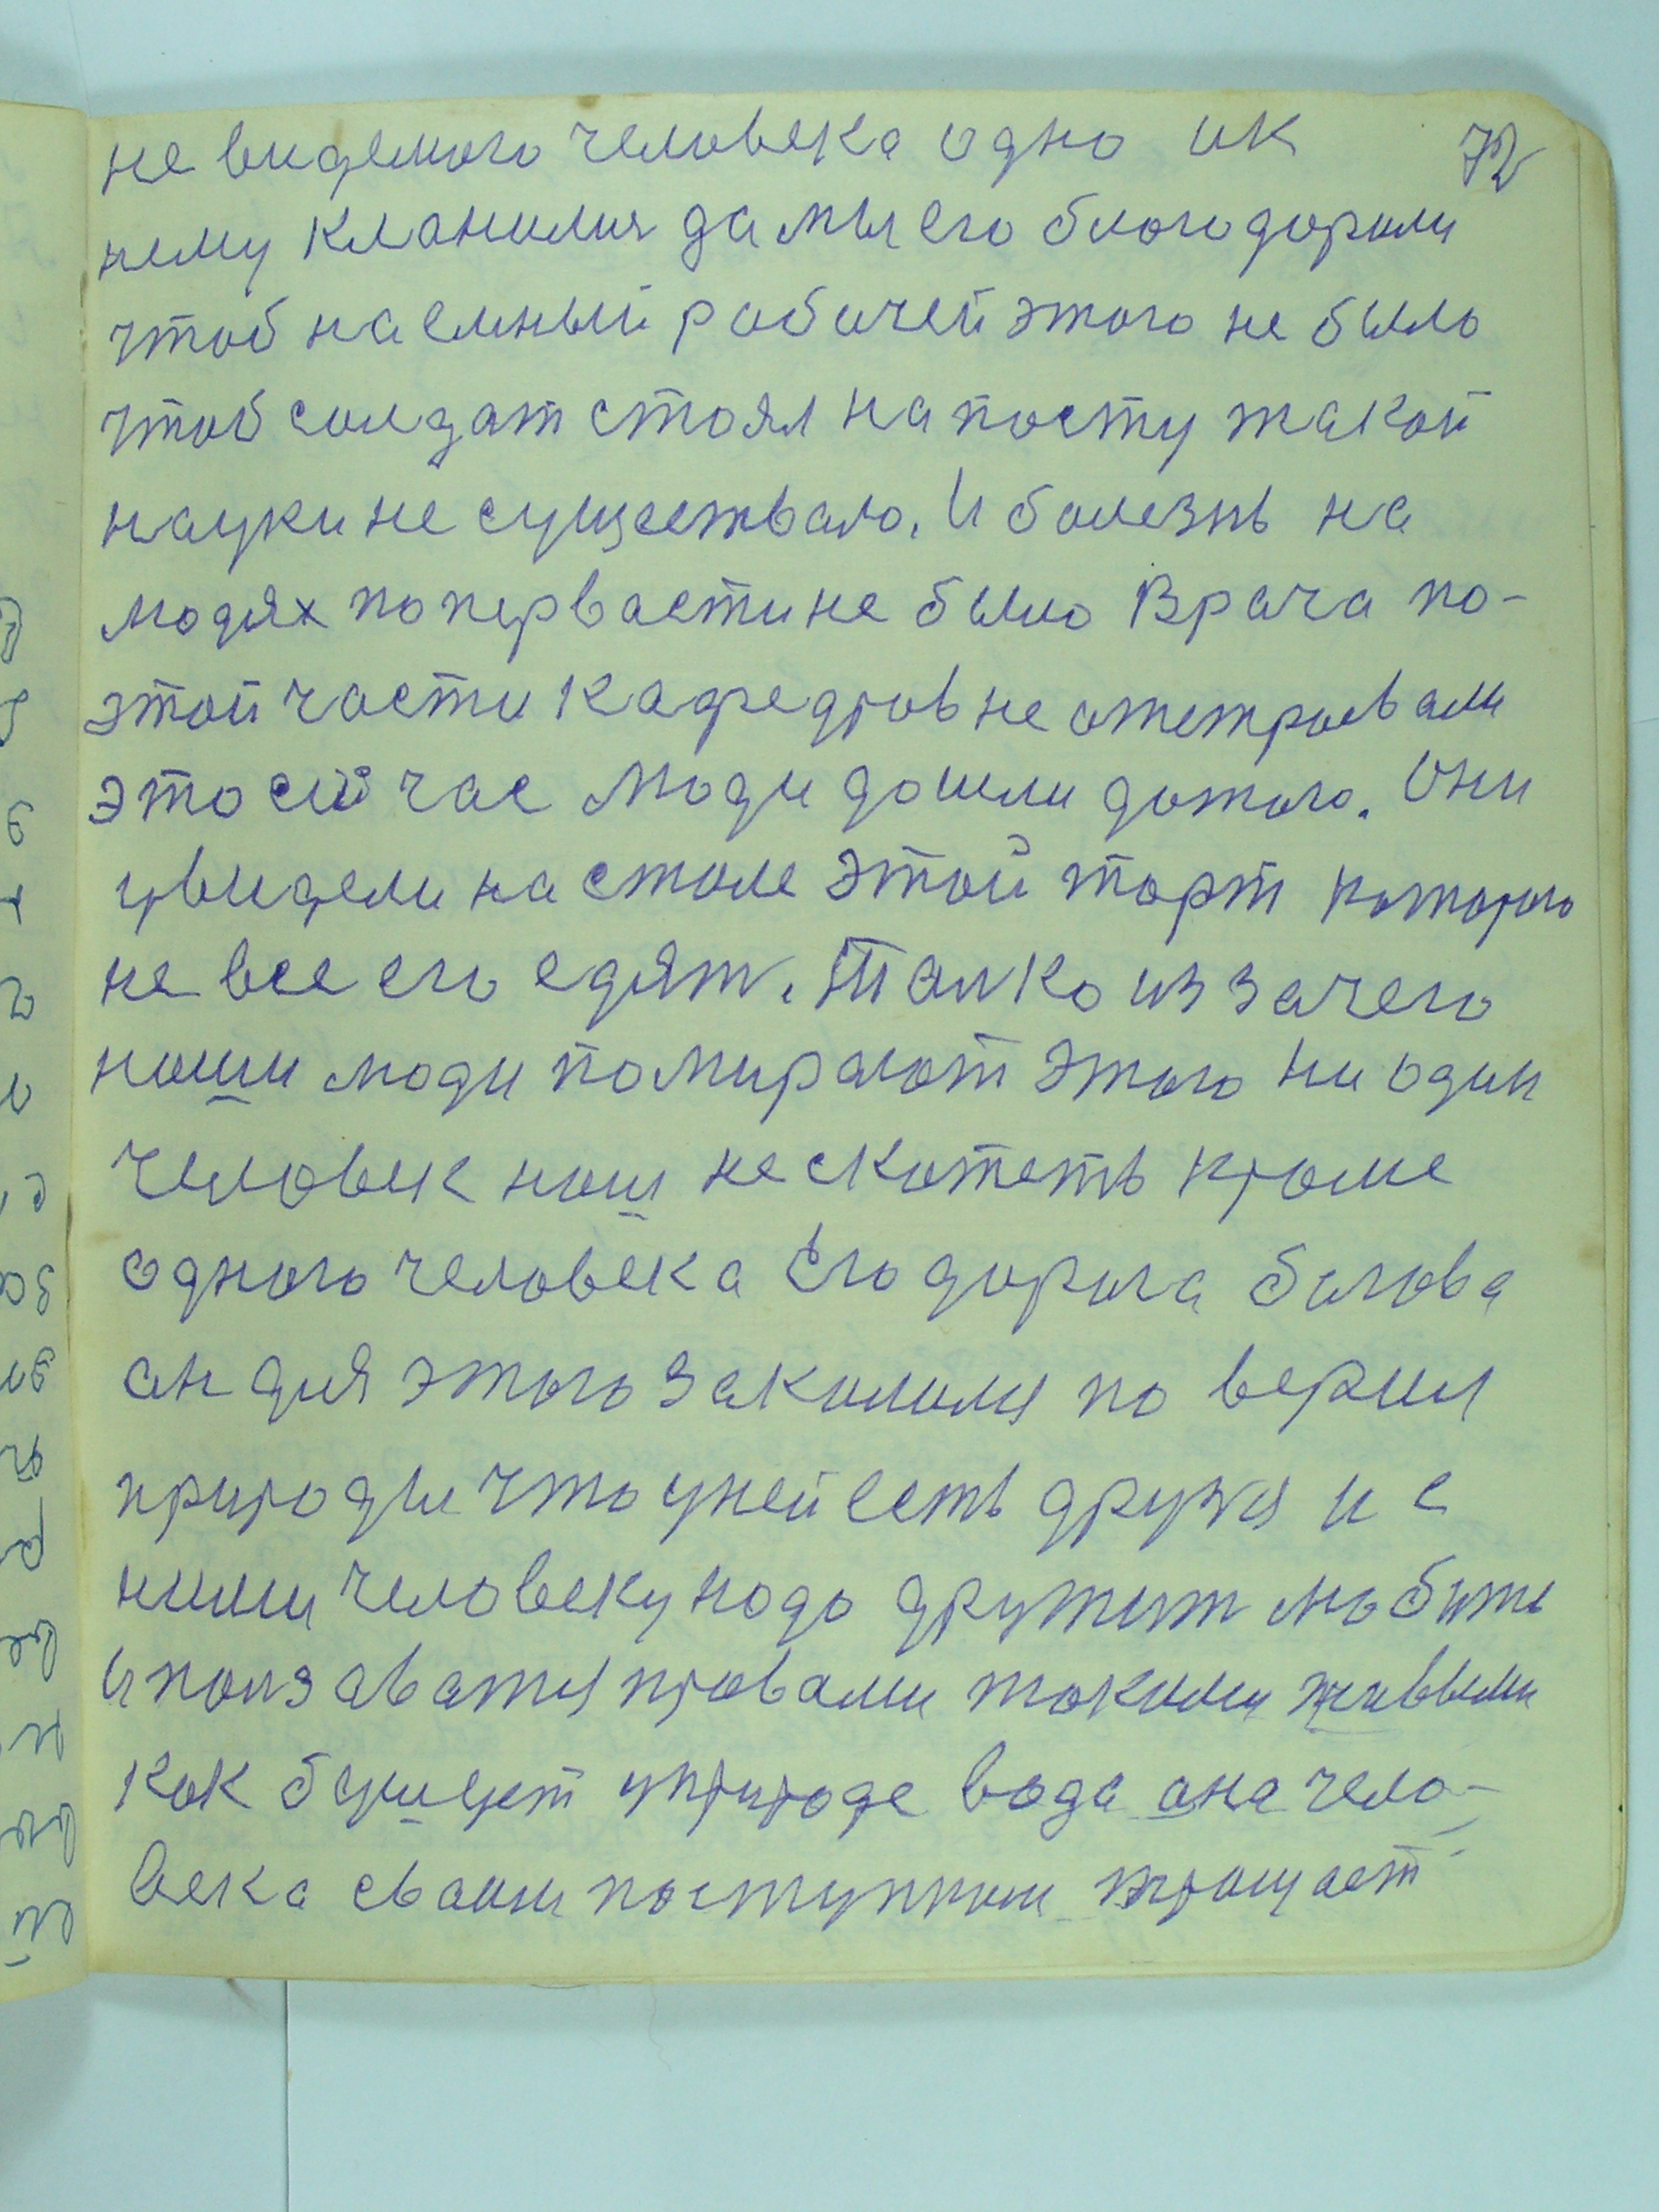 не видемого человека одно ик 72
нему кланилися да мы его благодорили
чтоб наемный рабочей этого не было
чтоб солдат стоял на посту такой
науки не существало. И болезнь на
людях попервасти не было Врача по-
этой части кафедров не
это сийчас люди дошли дотого. Они
увидели на столе этой торт которого
не все его едят. Талко из зачего
наши люди помирают этого ни один
человек наш не скажеть кроме
одного человека Его дорога былова
он для этого закалился по верил
природы что уней есть друзя и с
ними человеку надо дружит любить
и ползаватся правами такими живыми
как бушует уприроде вода она чело-
века сваим поступком